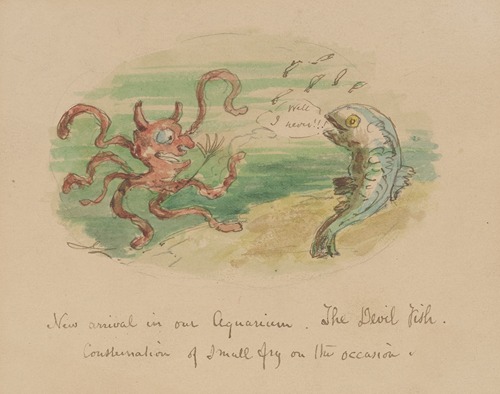 Well
I never!!
New arrival in our Aquarium. The Devil Fish.
Consternation of Small fry on the occasion.